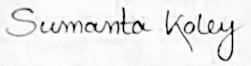 Sumanta Koley